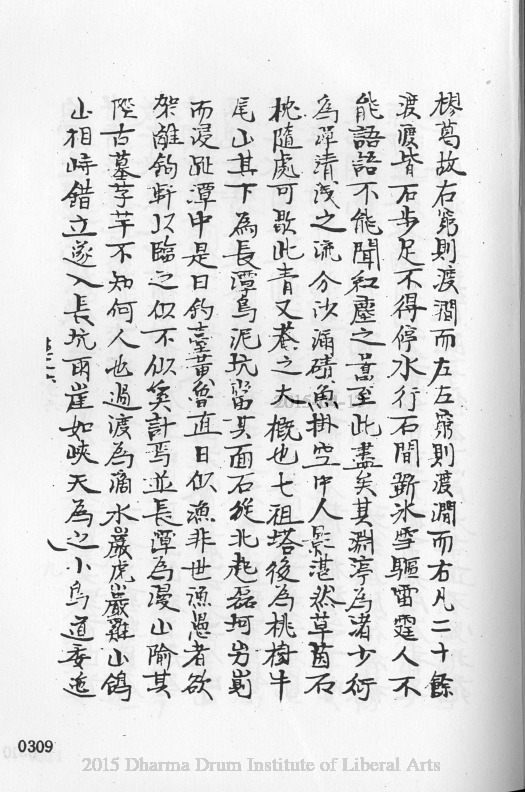 樛葛故右窮則渡澗而左左窮則渡澗而右凡二十餘
渡渡皆石步足不得停水行石間斷冰雪驅雷霆人不
能語語不能聞紅塵之囂至此盡矣其淵渟為渚少衍
為潭清淺之流分沙漏磧魚掛空中人影湛然草茵石
枕隨處可歇此青又菴之大概也七祖塔後為桃樹牛
尾山其下為長潭烏泥坑當其面石從北起磊坷岩剿
而浸趾潭中是曰釣臺黃魯直曰似漁非世漁愚者欲
架離鈎軒以臨之似不似奚計焉並長潭為漫山隃其
陘古墓芓芊不知何人也過渡為滴水巖虎巖雞山鴿
山相峙錯立遂入長坑兩崖如峽天為之小鳥道委迤
0309
2015 Dharma Drum Institute of Liberal Arts